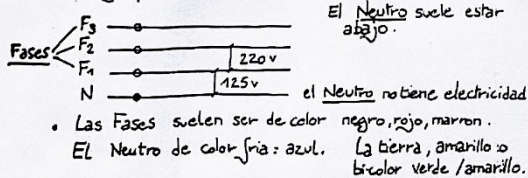 El Neutro suele estar
abajo.
Fases
F3
F2
F1
N
220v
125v
el Neutro no tiene electricidad
• Las Fases suelen ser de color negro, rojo, marron.
EL Neutro de color fria: azul. La tierra, amarillo o
bicolor verde/amarillo.